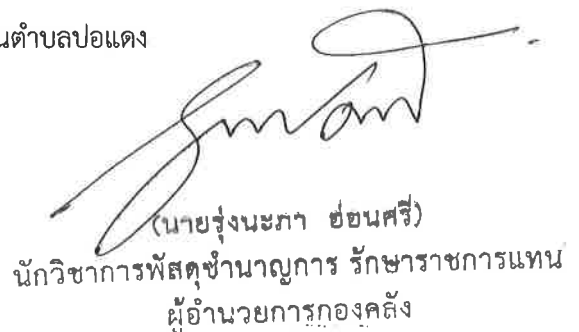 นตำบลปอแดง
(นายรุ่งนะภา ฮ่อนศรี)
นักวิชาการพัสดุชำนาญการ รักษาราชการแทน
ผู้อำนวยการกองคลัง